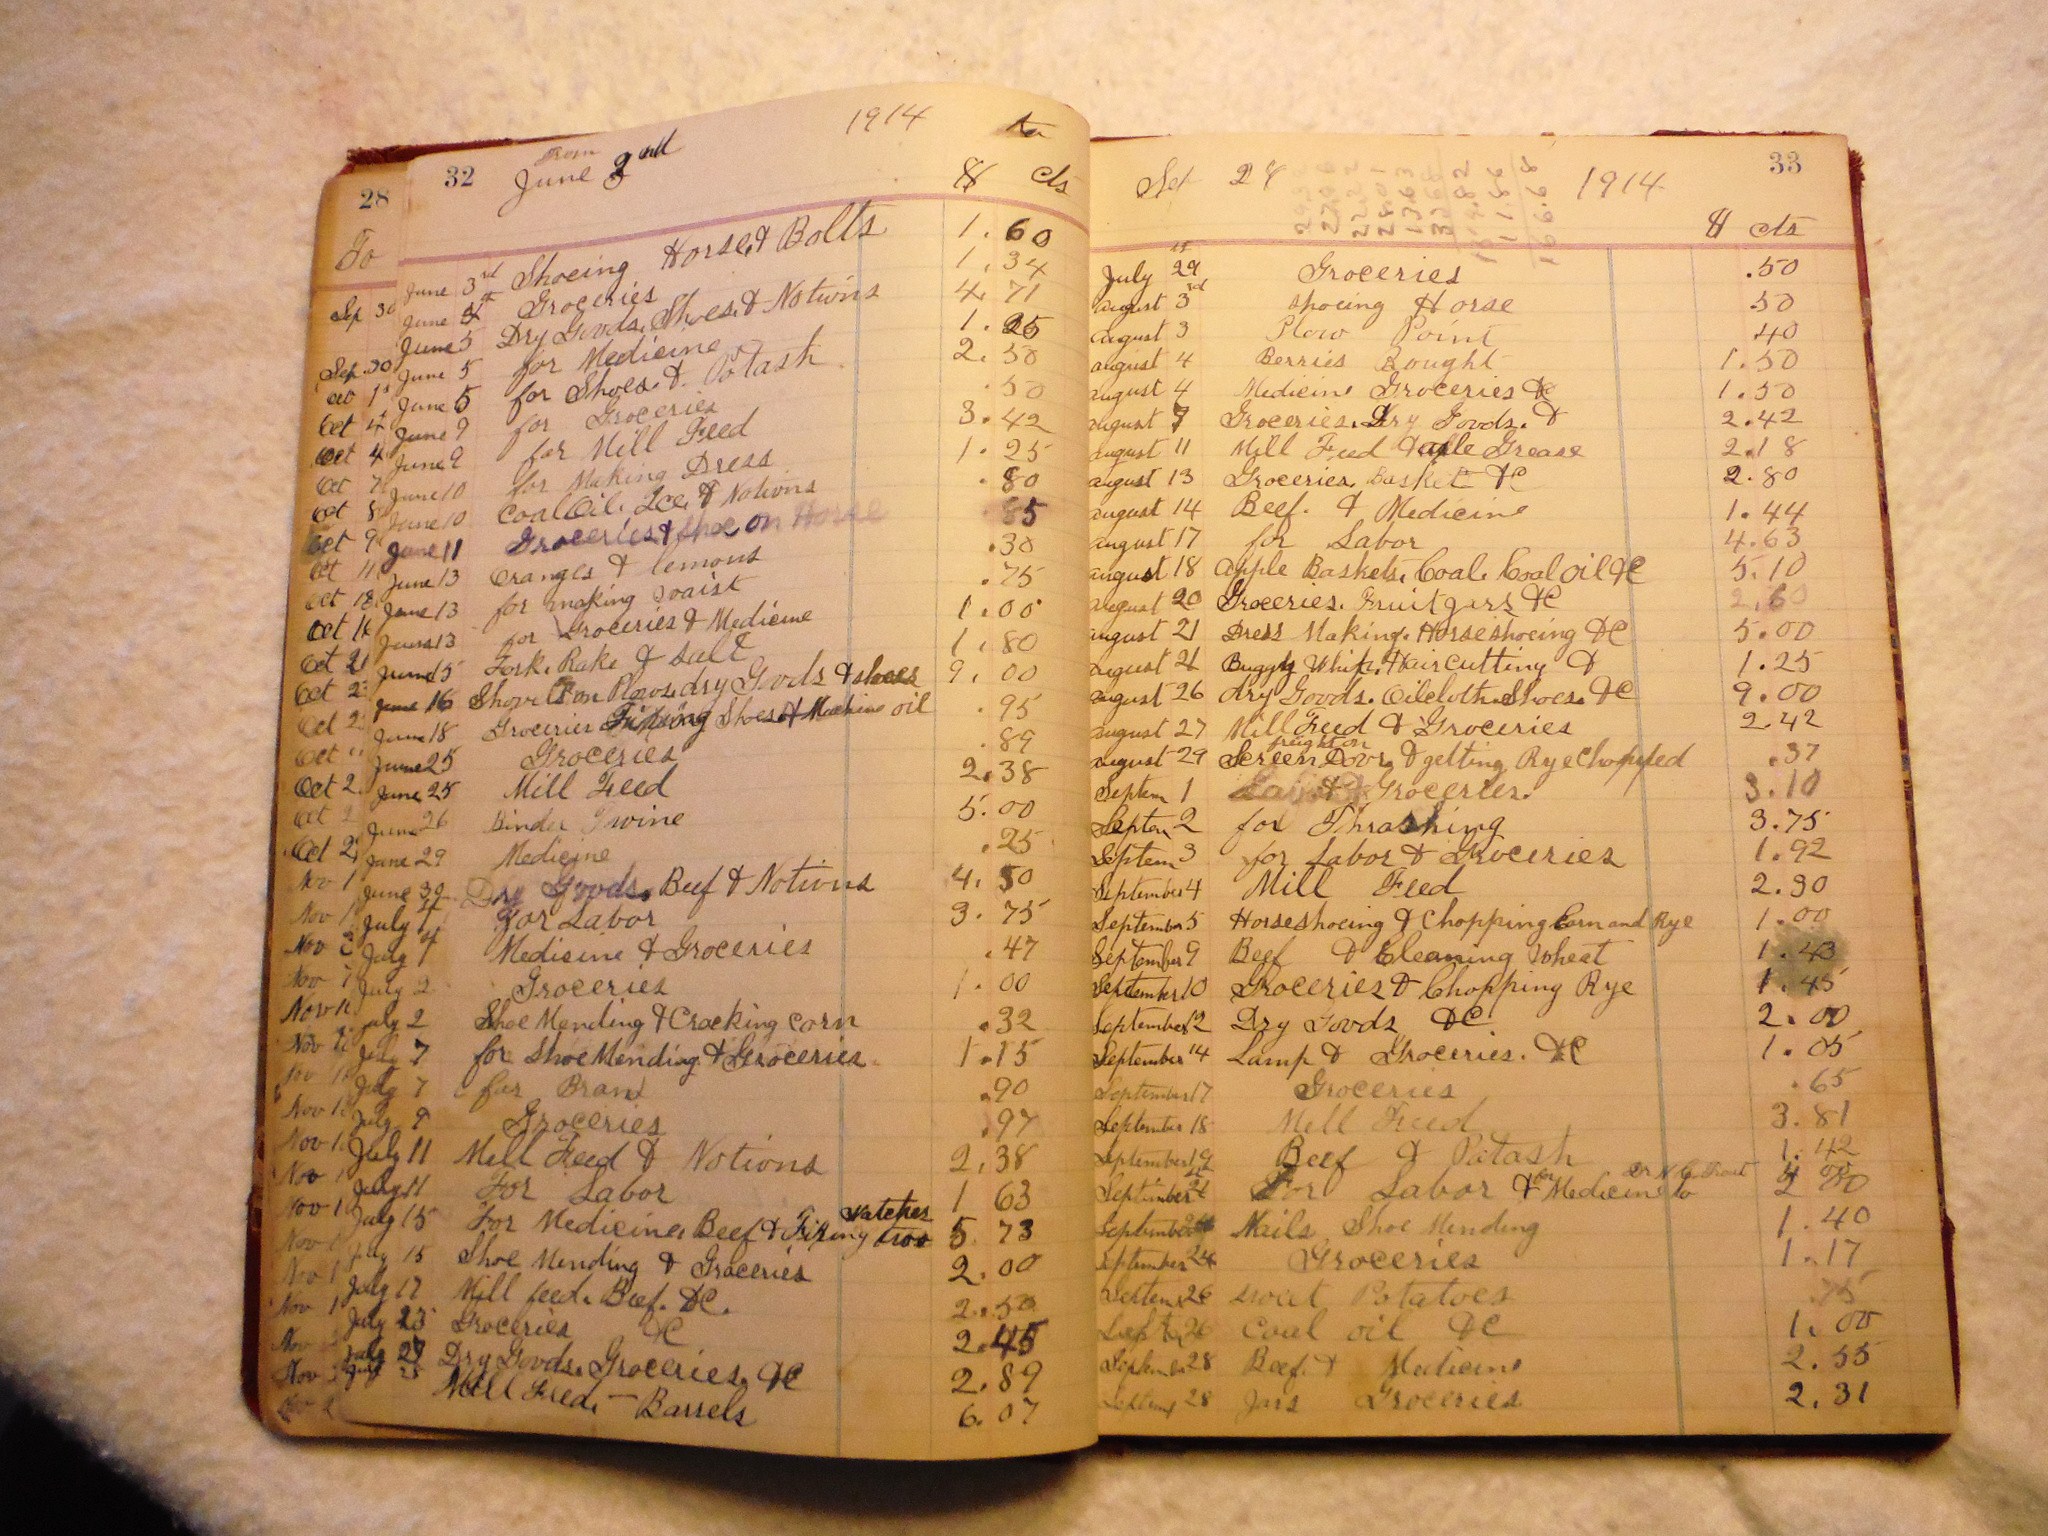 28
To
Sep 30
Sep. 30
Oct 1st
Oct 4
Oct 4
Oct 7
Oct 8
Oct 9
Oct 11
Oct 18
Oct 21
32 From June 3rd 1914 to
$ cts
June 3rd Shoeing Horse & Bolts 1.60
June Groceries 1.34
June 5 Dry Goods. Shoes. & Notions 4.71
June 5 for Medicine 1.25
June 5 for Shoes. & Potash 2.50
June 9 for Groceries .50
June 9 for Mill Feed 3.42
June 10 for Making Dress 1.25
June 10 Coal Oil. Ice. & Notions .80
June 11 Groceries & shoe on Horse
June 13 Oranges & lemons .30
June 13 for making waist .75
June 13 for Groceries & Medicine 1.00
June 15 Fork. Rake & Salt 1.80
June 16 Shovel Plows. dry Goods & shoes 9.00
June 18 Groceries Fixing Shoes & Machine oil .95
June 25 Groceries .89
June 25 Mill Feed 2.38
June 26 Binder Twine 5.00
June 29 Medicine .25
June 30 Dry Goods. Beef & Notions 4.50
July 1 For Labor 3.75
July 1 Medicine & Groceries .47
July 2 Groceries 1.00
July 2 Shoe Mending & Cracking corn .32
July 7 for Shoe Mending & Groceries 1.15
July 7 for Bran .90
July 9 Groceries .97
July 11 Mill Feed & Notions 2.38
July 11 For Labor 1 63
July 15 For Medicine. Beef & Fixing two watches 5 73
July 15 Shoe Mending & Groceries 2.00
July 17 Mill feed. Beef. &C. 2.50
July 23 Groceries &C 2.45
July 27 Dry Goods. Groceries. &C 2.89
July 28 Mill Feed. — Barrels 6.07
28 1914 33
$ cts
July 29 Groceries .50
august 3rd shoeing Horse .50
august 3 Plow Point .40
august 4 Berries Bought 1.50
august 4 Medicine Groceries &C 1.50
august 7 Groceries. Dry Goods. & 2.42
august 11 Mill Feed & axle Grease 2.18
august 13 Groceries. Basket &C 2.80
august 14 Beef. & Medicine 1.44
august 17 for Labor 4.63
august 18 apple Baskets. Coal. Coal oil &C 5.10
august 20 Groceries. Fruit jars &C 2.60
august 21 Dress Making. Horse shoeing &C 5.00
august 21 Buggy Whip. Hair cutting & 1.25
august 26 dry Goods. Oilcloth. Shoes. &C 9.00
august 27 Mill Feed & Groceries 2.42
august 29 freight on Screen Door. & getting Rye Chopped .37
Septem 1 & Groceries. 3.10
Septem 2 for Thrashing 3.75
Septem 3 for Labor & Groceries 1.92
September 4 Mill Feed 2.30
September 5 Horseshoeing & Chopping Corn and Rye 1.00
September 9 Beef & Cleaning wheat 1.43
September 10 Groceries & Chopping Rye 1.45
September 12 Dry Goods &C 2.00
September 14 Lamp & Groceries. &C 1.05
September 17 Groceries .65
September 18 Mill Feed 3.81
September 19 Beef & Potash 1.42
September For Labor & for Medicine to
September Nails Shoe Mending 1.40
September 24 Groceries 1.17
Septem 26 sweet Potatoes .75
Septem 26 Coal oil &C 1.00
Septem 28 Beef. & Medicine 2.55
Septem 28 Jars Groceries 2.31